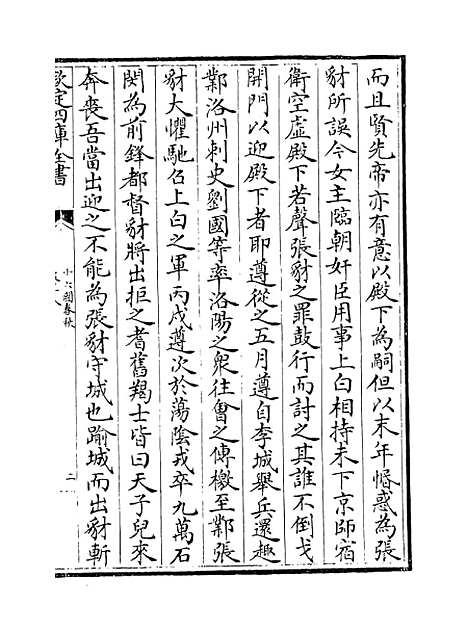 而且賢先帝亦有意以殿下為嗣但以末年惛惑為張
豺所誤今女主臨朝奸臣用事上白相持未下京師宿
衛空虛殿下若聲張豺之罪鼓行而討之其誰不倒戈
開門以迎殿下者即遵從之五月遵自李城舉兵還趣
鄴洛州刺史劉國等率洛陽之衆往會之傳檄至鄴張
豺大懼馳召上白之軍丙戌遵次於蕩陰戎卒九萬石
閔為前鋒都督豺將出拒之耆舊羯士皆曰天子兒來
奔喪吾當出迎之不能為張豺守城也踰城而出豺斬
欽定四庫全書
十六國春秋
二